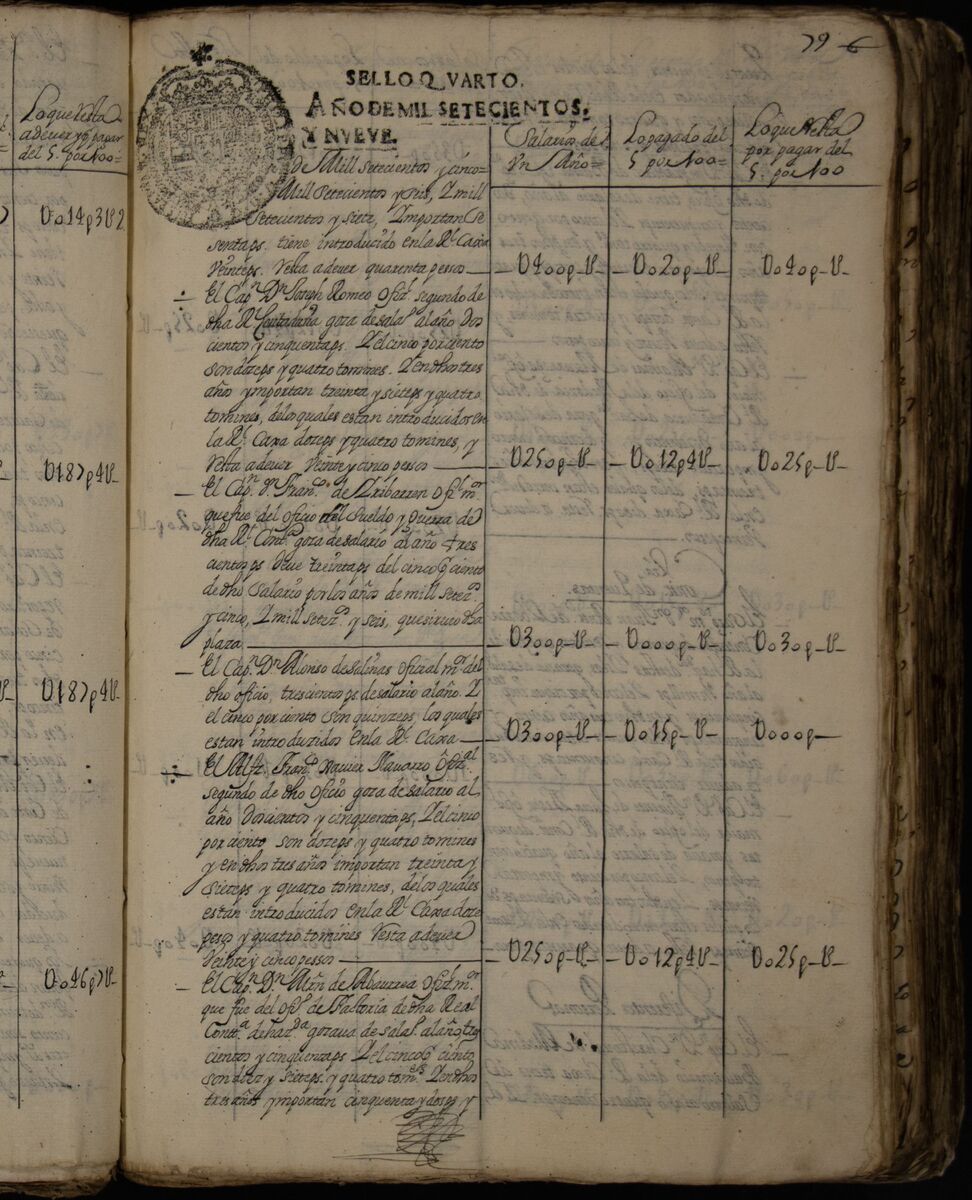 Lo que resta
a dever y pagar
del 5. por 100=
U014p3U2
U187p4U
U187p4U
U046p7U
79 6
SELLO QVARTO.
AÑO DE MIL SETECIENTOS,
Y NVEVE.
Salarios del
Vn Año=
Lo pagado del
5 por 100=
Lo que Resta
por pagar del
5. por 100
de Mill Setecientos y cinco
Mill Setecientos y seis, Y mill
Setecientos y siete, Ymportan se
sentaps. tiene introducido en la Rl. Caxa
Veinteps. Resta a dever quarenta pesos — U400p-U- U020p-U- U040p-U
El Capn. Dn. Joseph Romeo Ofizl. segundo de
dha Rl. Contaduria goza de salo. al año Dos
cientos y cinquentaps. Y el cinco por ciento
son dozeps y quatro tomines. Y en dhos tres
años ymportan treinta y sieteps y quatro
tomines, delos quales estan introducidos en
la Rl. Caxa dozeps y quatro tomines, y
Resta a dever Veinte y cinco pesos — U250p-U- U012p4U- U025p-U
El Capn. Dn. Franco. de Yribarren Ofizl. mor
que fue del oficio del Sueldo y Guerra de
dha Rl. Conta. goza de salario al año tres
cientosps deve treintaps del cinco p ciento
de dho Salario por los años de mill setezos.
y cinco, Y mill setezos. y seis, que siruio dha
plaza — U300p-U- U000p-U- U030p-U
El Capn. Dn. Alonso de Salinas oficial mor. del
dho oficio, trescientosps de salario al año. Y
el cinco por ciento son quinzeps, los quales
estan introduzidos en la Rl. Caxa — U300p-U- U015p-U- U000p-
El Alfz. Frano. Xauier Navarro Ofizal.
segundo de dho oficio goza de salario al
año Doscientos y cinquentaps, Y el cinco
por ciento son dozeps y quatro tomines
y en dhos tres años importan treinta y
sieteps y quatro tomines, delos quales
estan introducidos en la Rl. Caxa doze
pesos y quatro tomines Resta a dever
Veinte y cinco pesos — U250p-U- U012p4U- U025p-U
El Capn. Dn. Mrn de Abaurrea Ofizl. mor
que fue del ofo. de Factoria de dha Real
Contta. de hazda. gozaua de salo. al año tres
cientos y cinquentaps Y el cinco p ciento
son diez y sieteps. y quatro tomes. Y en dhos
tres años ymportan cinquenta y dosps y